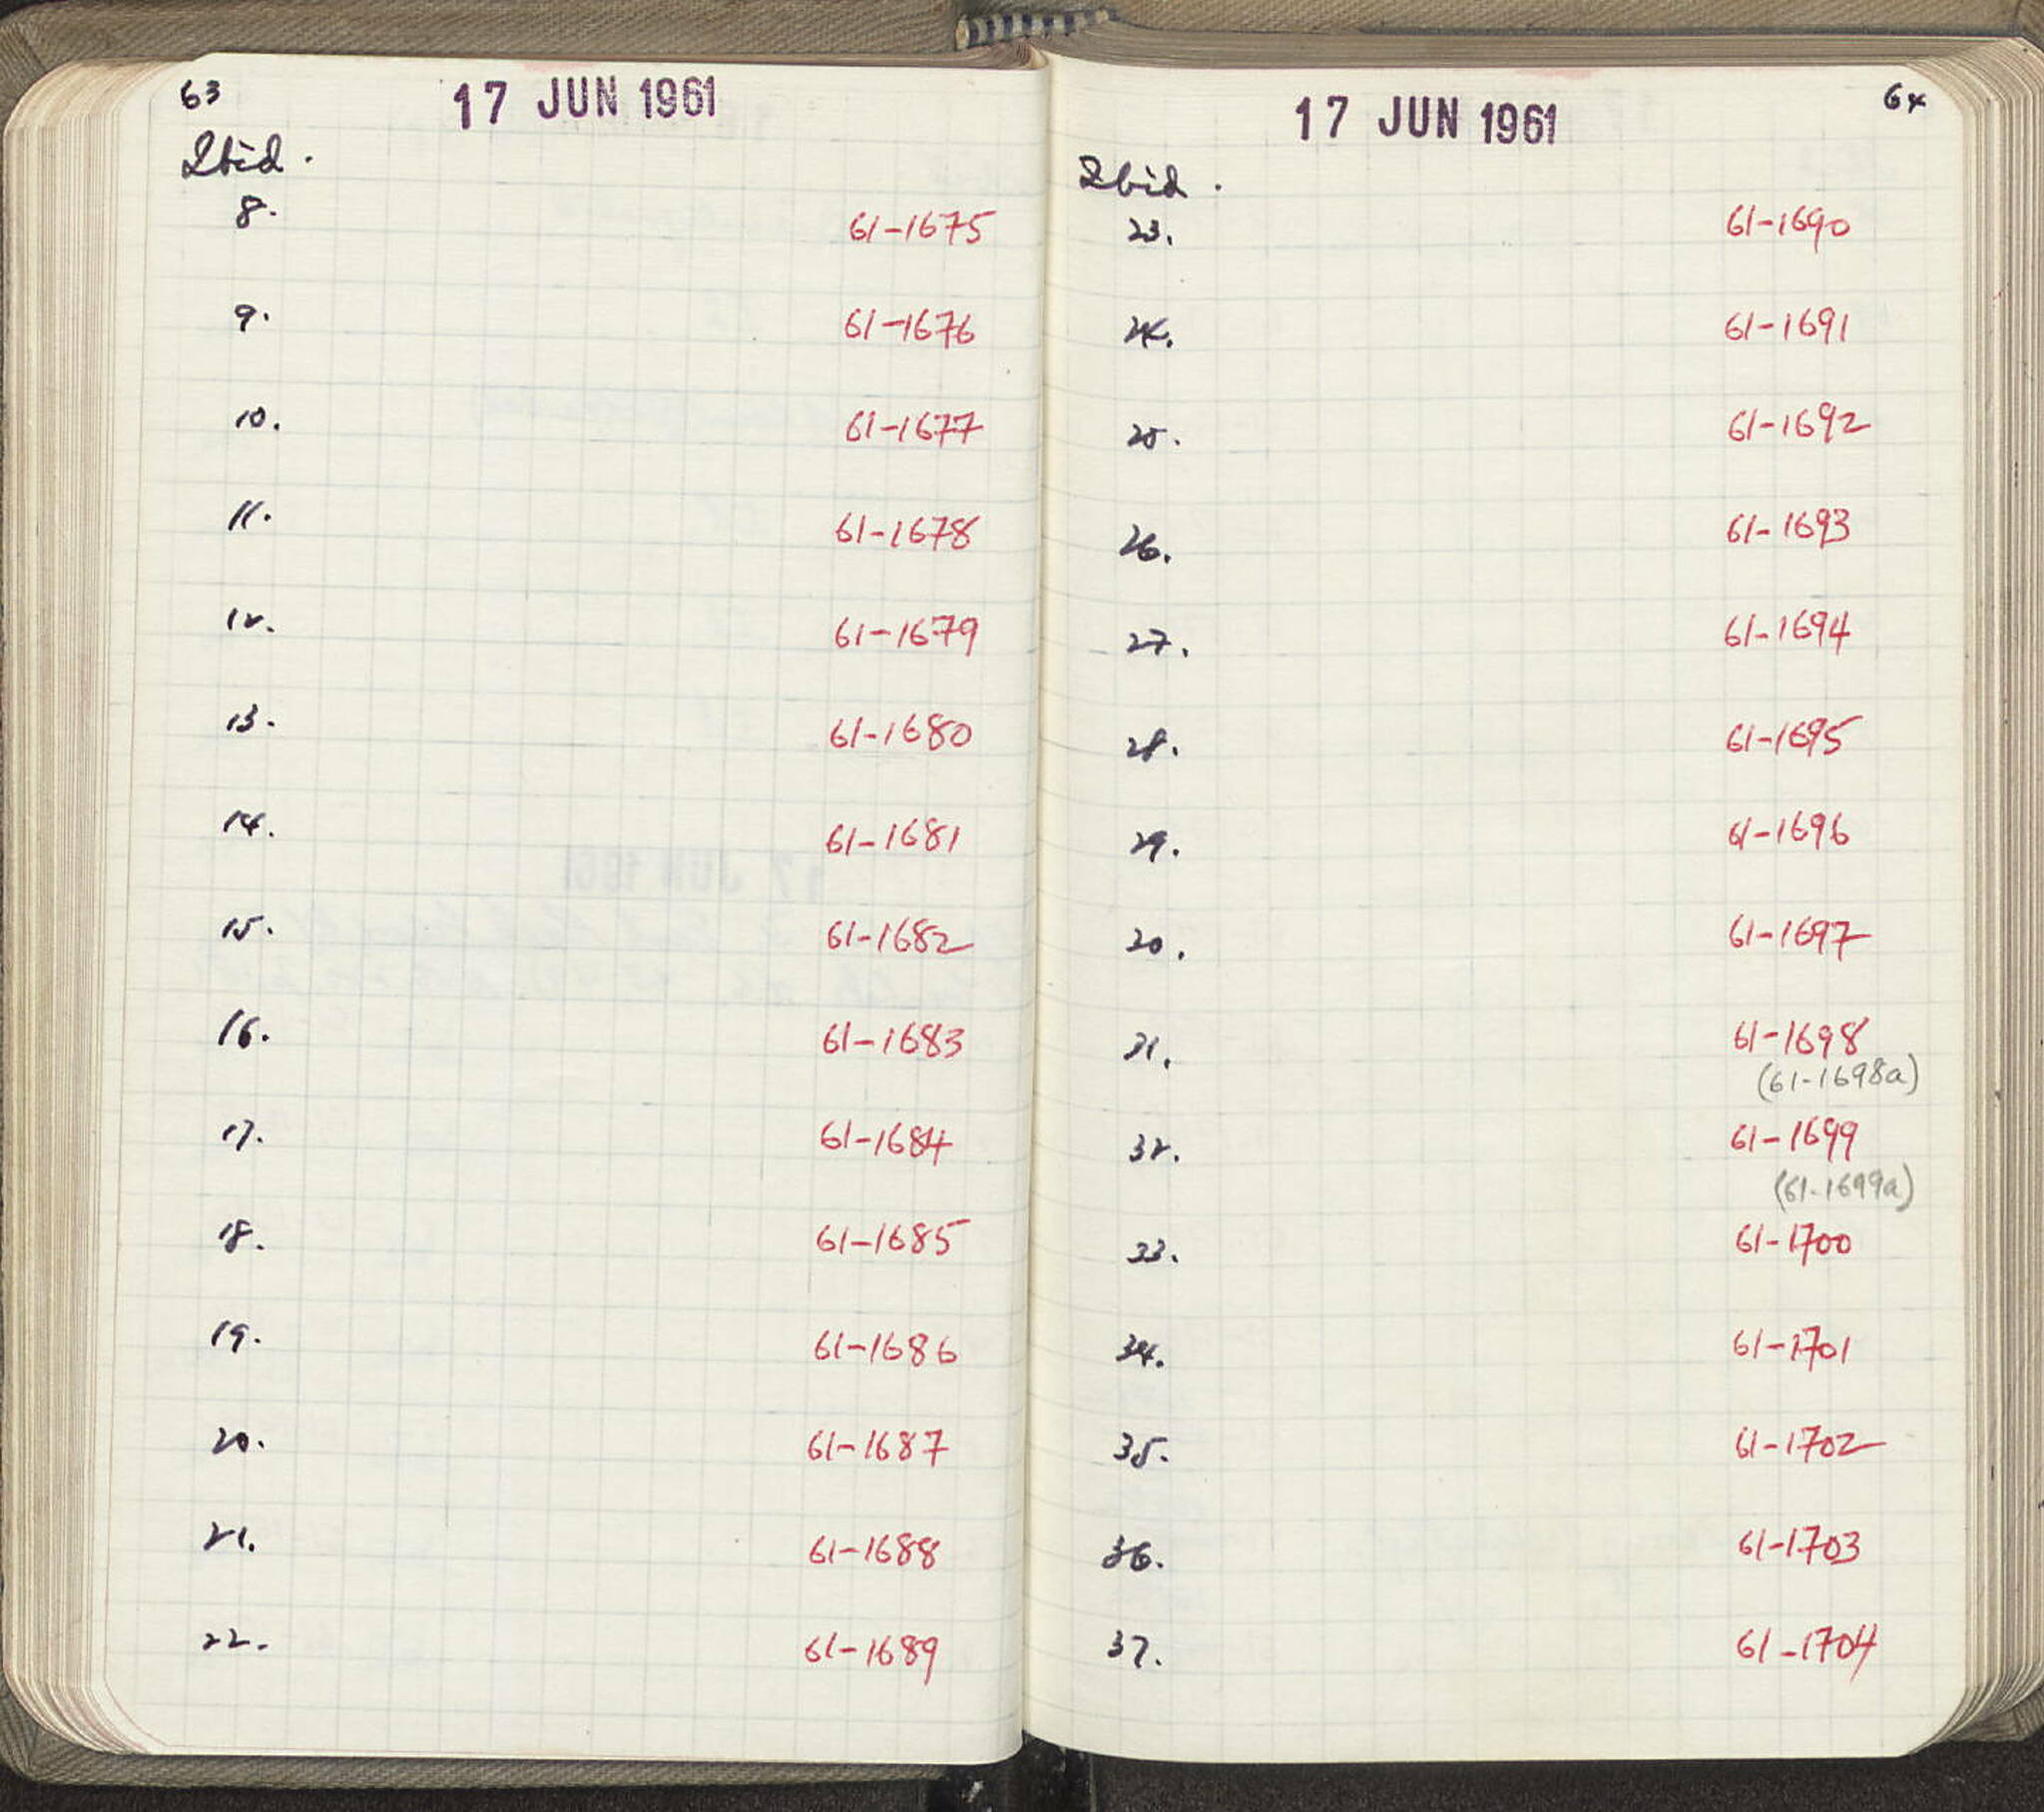 63
17 JUN 1961
Ibid.
8. 61-1675
9. 61-1676
10. 61-1677
11. 61-1678
12. 61-1679
13. 61-1680
14. 61-1681
15. 61-1682
16. 61-1683
17. 61-1684
18. 61-1685
19. 61-1686
20. 61-1687
21. 61-1688
22. 61-1689
64
17 JUN 1961
Ibid.
23. 61-1690
24. 61-1691
25. 61-1692
26. 61-1693
27. 61-1694
28. 61-1695
29. 61-1696
30. 61-1697
31. 61-1698
(61-1698a)
32. 61-1699
(61-1699a)
33. 61-1700
34. 61-1701
35. 61-1702
36. 61-1703
37. 61-1704